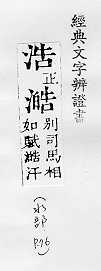 經典文字辨證書
浩正澔別司馬相
如賦澔汗
(水部 P76)